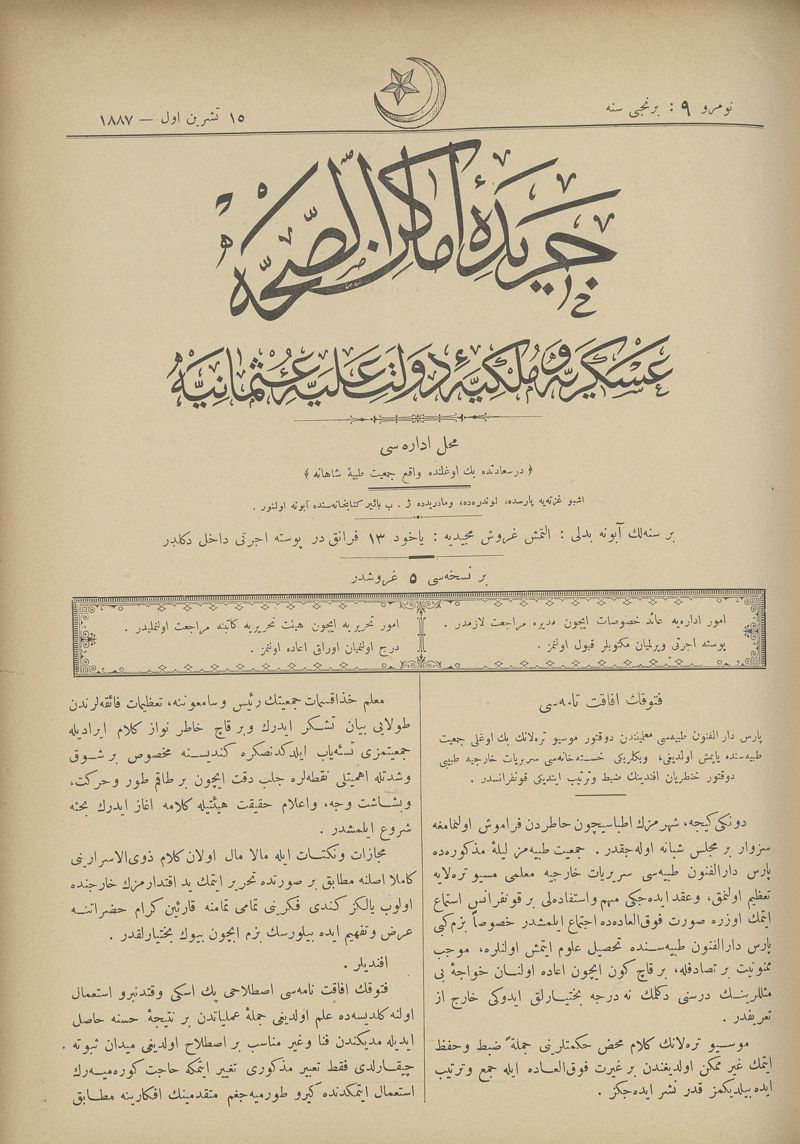 نومرو ٩ : برنجی سنه
١٥ تشرین اول — ١٨٨٧
جریدهٔ اماكن الصحّه
عسكریه و ملكیهٔ دولت علیهٔ عثمانیه
محل اداره‌سی
﴿ درسعادتده بك اوغلنده واقع جمعیت طبیهٔ شاهانه ﴾
اشبو غزته‌یه پارسده، لوندره‌ده، ومادریدده ژ . ب بائیر كتابخانه‌سنده آبونه اولنور .
بر سنه‌لك آبونه بدلی : التمش غروش مجیدیه : یاخود ١٣ فرانق در پوسته اجرتی داخل دكلدر
بر نسخه‌سی ٥ غروشدر
امور اداره‌یه عائد خصوصات ایچون مدیره مراجعت لازمدر .
پوسته اجرتی ویرلمیان مكتوبلر قبول اولنمز .
امور تحریریه ایچون هیئت تحریریه كاتبنه مراجعت اولنملیدر .
درج اولنمیان اوراق اعاده اولنمز .
فتوقك افاقت تامه‌سی
پارس دار الفنون طبیه‌سی معلملرندن دوقتور موسیو تره‌لانك بك اوغلی جمعیت
طبیه‌سنده یاپمش اولدیغی، وبكلربكی خسته‌خانه‌سی سریریات خارجیه طبیبی
دوقتور خنطریان افندینك ضبط وترتیب ایتدیكی قونفرانسدر .
دونكی كیجه، شهرمزك اطباسیچون خاطردن فراموش اولنمامغه
سزوار بر مجلس شبانه اوله‌جقدر . جمعیت طبیه‌مز لیلهٔ مذكوره‌ده
پارس دارالفنون طبیه‌سی سریریات خارجیه معلمی مسیو تره‌لایه
تعظیم اولنمق، وعقد ایده‌جكی مهم واستفاده‌لی بر قونفرانس استماع
ایتمك اوزره صورت فوق‌العاده‌ده اجتماع ایلمشدر خصوصاً بزم كبی
پارس دارالفنون طبیه‌سنده تحصیل علوم ایتمش اولنلره، موجب
ممنونیت بر تصادفله، بر قاچ كون ایچون اعاده اولنان خواجهٔ بی
مثللرینك درسنی دكلمك نه درجه بختیارلق ایدوكی خارج از
تعریفدر .
موسیو تره‌لانك كلام محض حكمتلرینی جملهً ضبط وحفظ
ایتمك غیر ممكن اولدیغندن بر غیرت فوق‌العاده ایله جمع وترتیب
ایده‌بیلدیكمز قدر نشر ایده‌جكز .
معلم خذاقسمات جمعیتك رئیس وسامعوننه، تعظیمات فائقه‌لرندن
طولایی بیان تشكر ایدرك وبر قاچ خاطر نواز كلام ایرادیله
جمعیتمزی تسئه‌یاب ایلدكدنصكره كندیسنه مخصوص بر شوق
وشدتله اهمیتلی نقطه‌لره جلب دقت ایچون بر طاقم طور وحركت،
وبشاشت وجه، واعلام حقیقت هیئتیله كلامه اغاز ایدرك بحثه
شروع ایلمشدر .
مجازات ونكتات ایله مالا مال اولان كلام ذوی‌الاسرارینی
كاملا اصلنه مطابق بر صورتده تحریر ایتمك ید اقتدارمزك خارجنده
اولوب یالكز كندی فكرینی تمامی تمامنه قارئین كرام حضراتنه
عرض وتفهیم ایده بیلورسك بزم ایچون بیوك بختیارلقدر .
افندیلر .
فتوقك افاقت تامه‌سی اصطلاحی پك اسكی وقتدنبرو استعمال
اولنه كلدیسه‌ده علم اولدیغی جملهٔ عملیاتدن بر نتیجهٔ حسنه حاصل
ایدیله مدیكندن فنا وغیر مناسب بر اصطلاح اولدیغی میدان ثبوته .
چیقارلدی فقط تعبیر مذكوری تغییر ایتمكه حاجت كوره‌میه‌رك
استعمال ایتمكدنده كیرو طورمیه‌جغم متقدمینك افكارینه مطابق